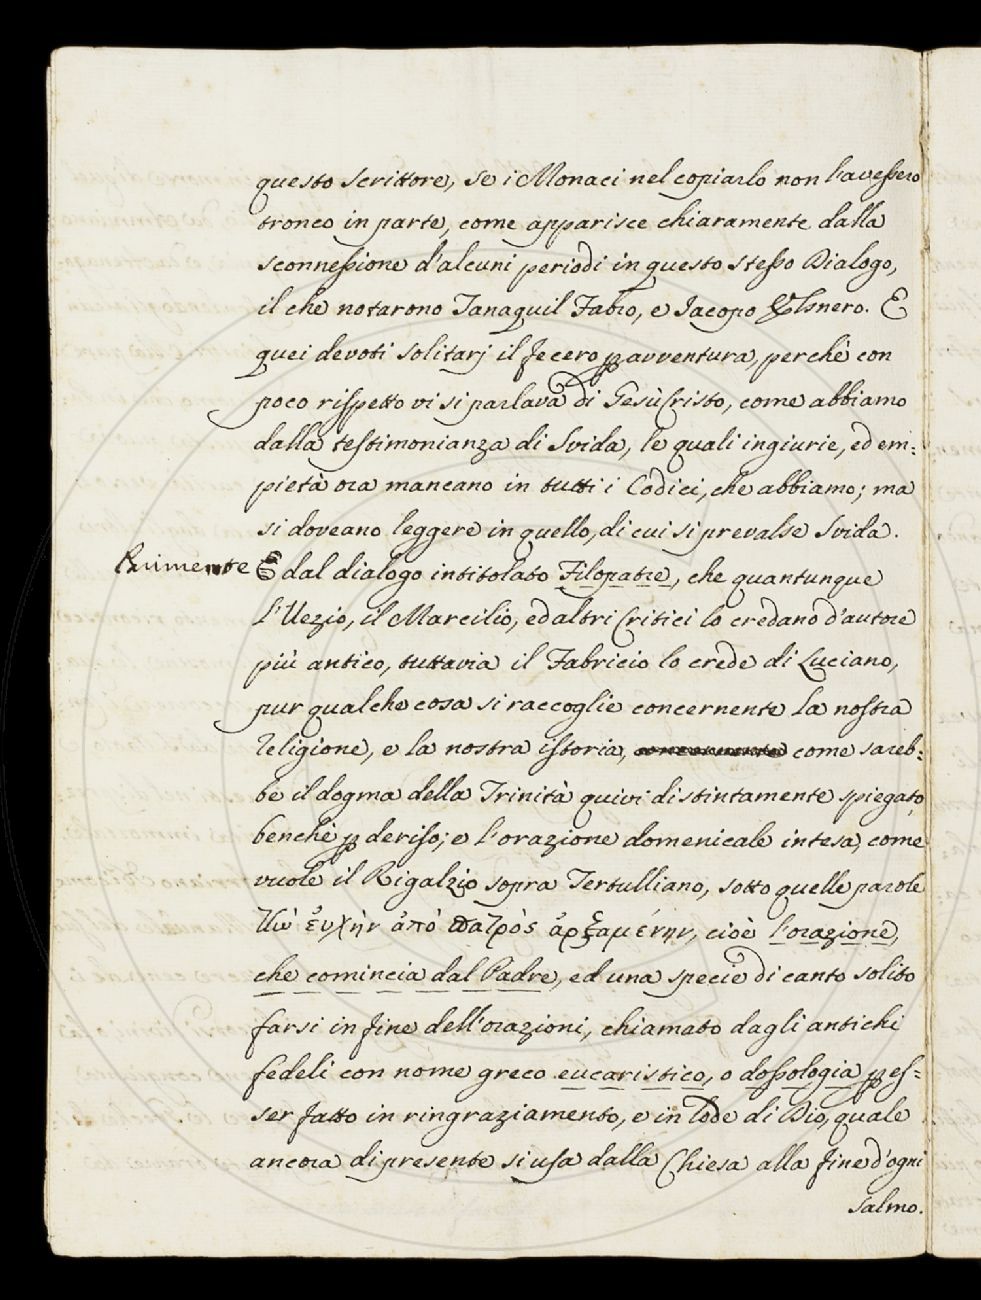 questo scrittore, se i Monaci nel copiarlo non l'avessero
tronco in parte, come apparisce chiaramente dalla
sconnessione d'alcuni periodi in questo stesso Dialogo,
il che notarono Tanaquil Fabro, e Jacopo Elsnero. E
quei devoti solitarj il fecero p avventura, perchè con
poco rispetto vi si parlava di Gesù Cristo, come abbiamo
dalla testimonianza di Svida, le quali ingiurie, ed em:
pietà ora mancano in tutti i Codici, che abbiamo; ma
si doveano leggere in quello, di cui si prevalse Svida.
Parimente E dal dialogo intitolato Filopatre, che quantunque
l'Uezio, il Marcilio, ed altri Critici lo credano d'autore
più antico, tuttavia il Fabricio lo crede di Luciano,
pur qualche cosa si raccoglie concernente la nostra
religione, e la nostra istoria, come sareb:
be il dogma della Trinità quivi distintamente spiegato,
benchè p deriso; e l'orazione domenicale intesa, come
vuole il Rigalzio sopra Tertulliano, sotto quelle parole
ἐυχὴν ἀπὸ πατρὸς ἀρξαμένην, cioè l'orazione,
che comincia dal Padre, ed una specie di canto solito
farsi in fine dell'orazioni, chiamato dagli antichi
fedeli con nome greco eucaristico, o dossologia p es=
ser fatto in ringraziamento, e in lode di Dio, quale
ancora di presente si usa dalla Chiesa alla fine d'ogni
salmo.